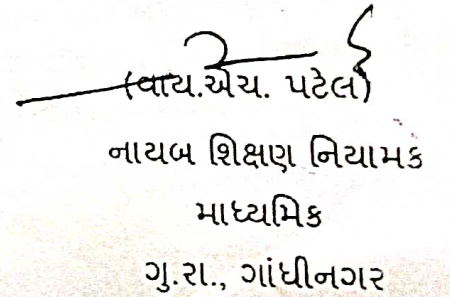 (વાય.એચ. પટેલ)
નાયબ શિક્ષણ નિયામક
માધ્યમિક
ગુ.રા., ગાંધીનગર